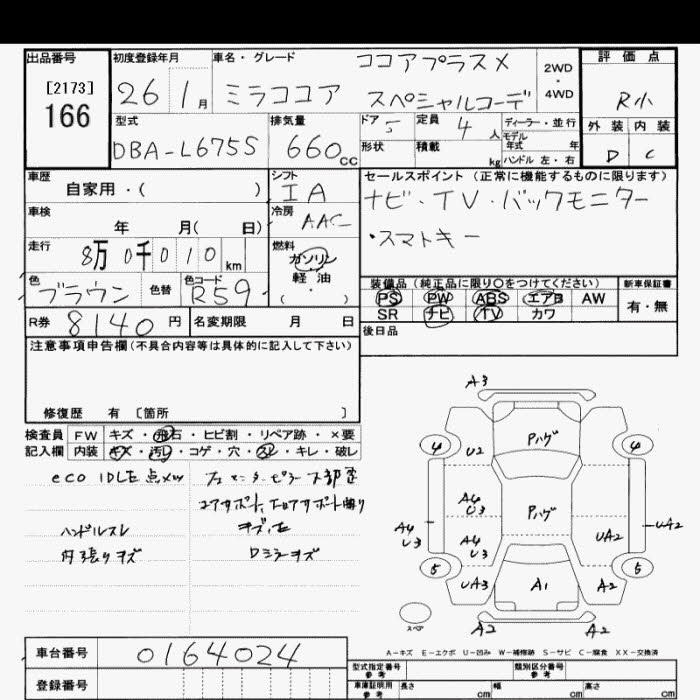 出品番号
[2173]
166
初度登録年月
26 1月
車名・グレード
ココアプラスX
ミラココア スペシャルコーデ
2WD
・
4WD
評価点
R小
外装 内装
D C
型式
DBA-L675S
排気量
660cc
ドア 5
定員 4人
ディーラー・並行
モデル年式 年
形状
積載 kg
ハンドル 左・右
車歴
自家用・( )
シフト
IA
車検
年 月( 日)
冷房
AAC
走行
8万0千010km
燃料
ガソリン
軽油
( ・ )
色
ブラウン
色替
色コード
R59
R券 8140円
名変期限 月 日
セールスポイント(正常に機能するものに限ります)
ナビ・TV・バックモニター
・スマートキー
装備品(純正品に限り○をつけてください)
新車保証書
PS PW ABS エアB AW
SR ナビ TV カワ
有・無
後日品
注意事項申告欄(不具合内容等は具体的に記入して下さい)
修復歴 有 〔箇所 〕
検査員 FW キズ・飛石・ヒビ割・リペア跡・×要
記入欄 内装 キズ・汚れ・コゲ・穴・スレ・キレ・破レ
eco IDLE点メツ
ハンドルスレ
内張りキズ
下部歪
キズ、歪
Dミラーキズ
A3
Pハゲ
4 4
U2
A4
U3
Pハゲ
A4
U3
A4
U3
UA2
UA2
5 5
UA3
A1
A2
スペア
A2 A2
A-キズ E-エクボ U-凹み W-補修跡 S-サビ C-腐食 XX-交換済
車台番号
0164024
登録番号
型式指定番号
参考
類別区分番号
参考
車庫証明用
参考
長さ cm
幅 cm
高さ cm